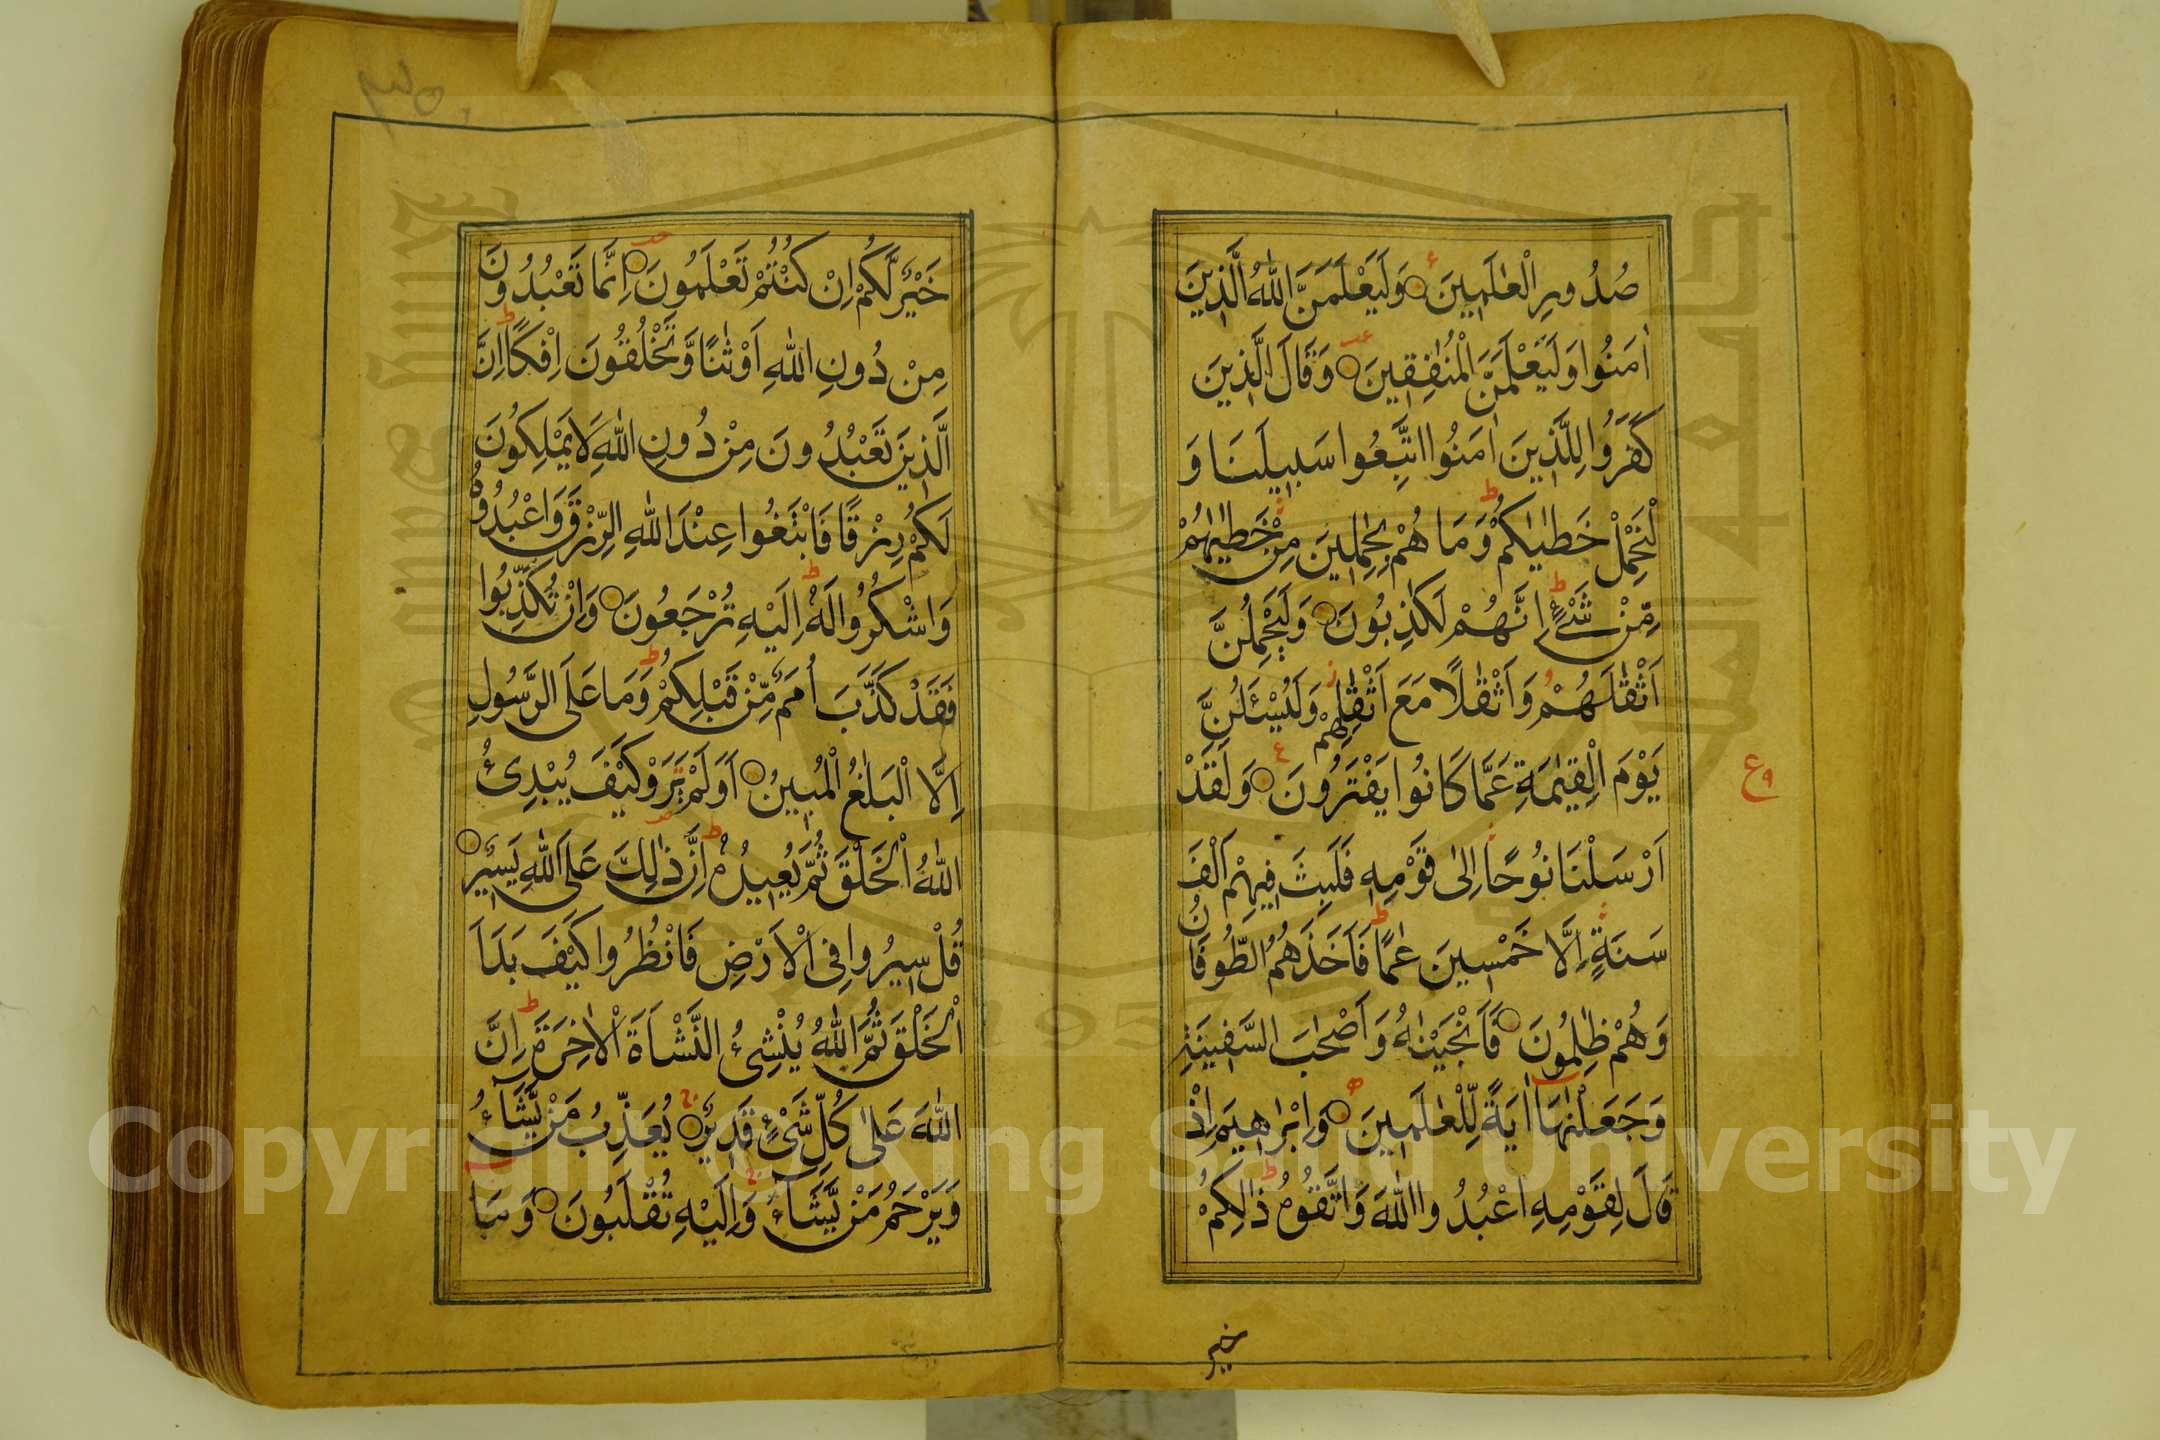 صُدُورِ الْعٰلَمِيْنَ وَلَيَعْلَمَنَّ اللّٰهُ الَّذِيْنَ
اٰمَنُوا وَلَيَعْلَمَنَّ الْمُنٰفِقِيْنَ وَقَالَ الَّذِيْنَ
كَفَرُوا لِلَّذِيْنَ اٰمَنُوا اتَّبِعُوا سَبِيْلَنَا وَ
لْنَحْمِلْ خَطٰيٰكُمْ وَمَا هُمْ بِحٰمِلِيْنَ مِنْ خَطٰيٰهُمْ
مِّنْ شَيْءٍ اِنَّهُمْ لَكٰذِبُوْنَ وَلَيَحْمِلُنَّ
اَثْقٰلَهُمْ وَاَثْقٰلًا مَعَ اَثْقٰلِهِمْ وَلَيُسْئَلُنَّ
يَوْمَ الْقِيٰمَةِ عَمَّا كَانُوا يَفْتَرُوْنَ وَلَقَدْ
اَرْسَلْنَا نُوْحًا اِلٰى قَوْمِهٖ فَلَبِثَ فِيْهِمْ اَلْفَ
سَنَةٍ اِلَّا خَمْسِيْنَ عٰمًا فَاَخَذَهُمُ الطُّوفَانُ
وَهُمْ ظٰلِمُوْنَ فَاَنْجَيْنٰهُ وَاَصْحٰبَ السَّفِيْنَةِ
وَجَعَلْنٰهَا اٰيَةً لِّلْعٰلَمِيْنَ وَاِبْرٰهِيْمَ اِذْ
قَالَ لِقَوْمِهِ اعْبُدُوا اللّٰهَ وَاتَّقُوْهُ ذٰلِكُمْ
ع٩
خير
خَيْرٌ لَّكُمْ اِنْ كُنْتُمْ تَعْلَمُوْنَ اِنَّمَا تَعْبُدُوْنَ
مِنْ دُوْنِ اللّٰهِ اَوْثٰنًا وَّتَخْلُقُوْنَ اِفْكًا اِنَّ
الَّذِيْنَ تَعْبُدُوْنَ مِنْ دُوْنِ اللّٰهِ لَا يَمْلِكُوْنَ
لَكُمْ رِزْقًا فَابْتَغُوا عِنْدَ اللّٰهِ الرِّزْقَ وَاعْبُدُوْهُ
وَاشْكُرُوا لَهٗ اِلَيْهِ تُرْجَعُوْنَ وَاِنْ تُكَذِّبُوا
فَقَدْ كَذَّبَ اُمَمٌ مِّنْ قَبْلِكُمْ وَمَا عَلَى الرَّسُوْلِ
اِلَّا الْبَلٰغُ الْمُبِيْنُ اَوَلَمْ يَرَوْا كَيْفَ يُبْدِئُ
اللّٰهُ الْخَلْقَ ثُمَّ يُعِيْدُهٗ اِنَّ ذٰلِكَ عَلَى اللّٰهِ يَسِيْرٌ
قُلْ سِيْرُوا فِى الْاَرْضِ فَانْظُرُوا كَيْفَ بَدَاَ
الْخَلْقَ ثُمَّ اللّٰهُ يُنْشِئُ النَّشْاَةَ الْاٰخِرَةَ اِنَّ
اللّٰهَ عَلٰى كُلِّ شَيْءٍ قَدِيْرٌ يُعَذِّبُ مَنْ يَّشَآءُ
وَيَرْحَمُ مَنْ يَّشَآءُ وَاِلَيْهِ تُقْلَبُوْنَ وَمَا
Copyright © King Saud University
King Saud University
1957
جامعة الملك سعود